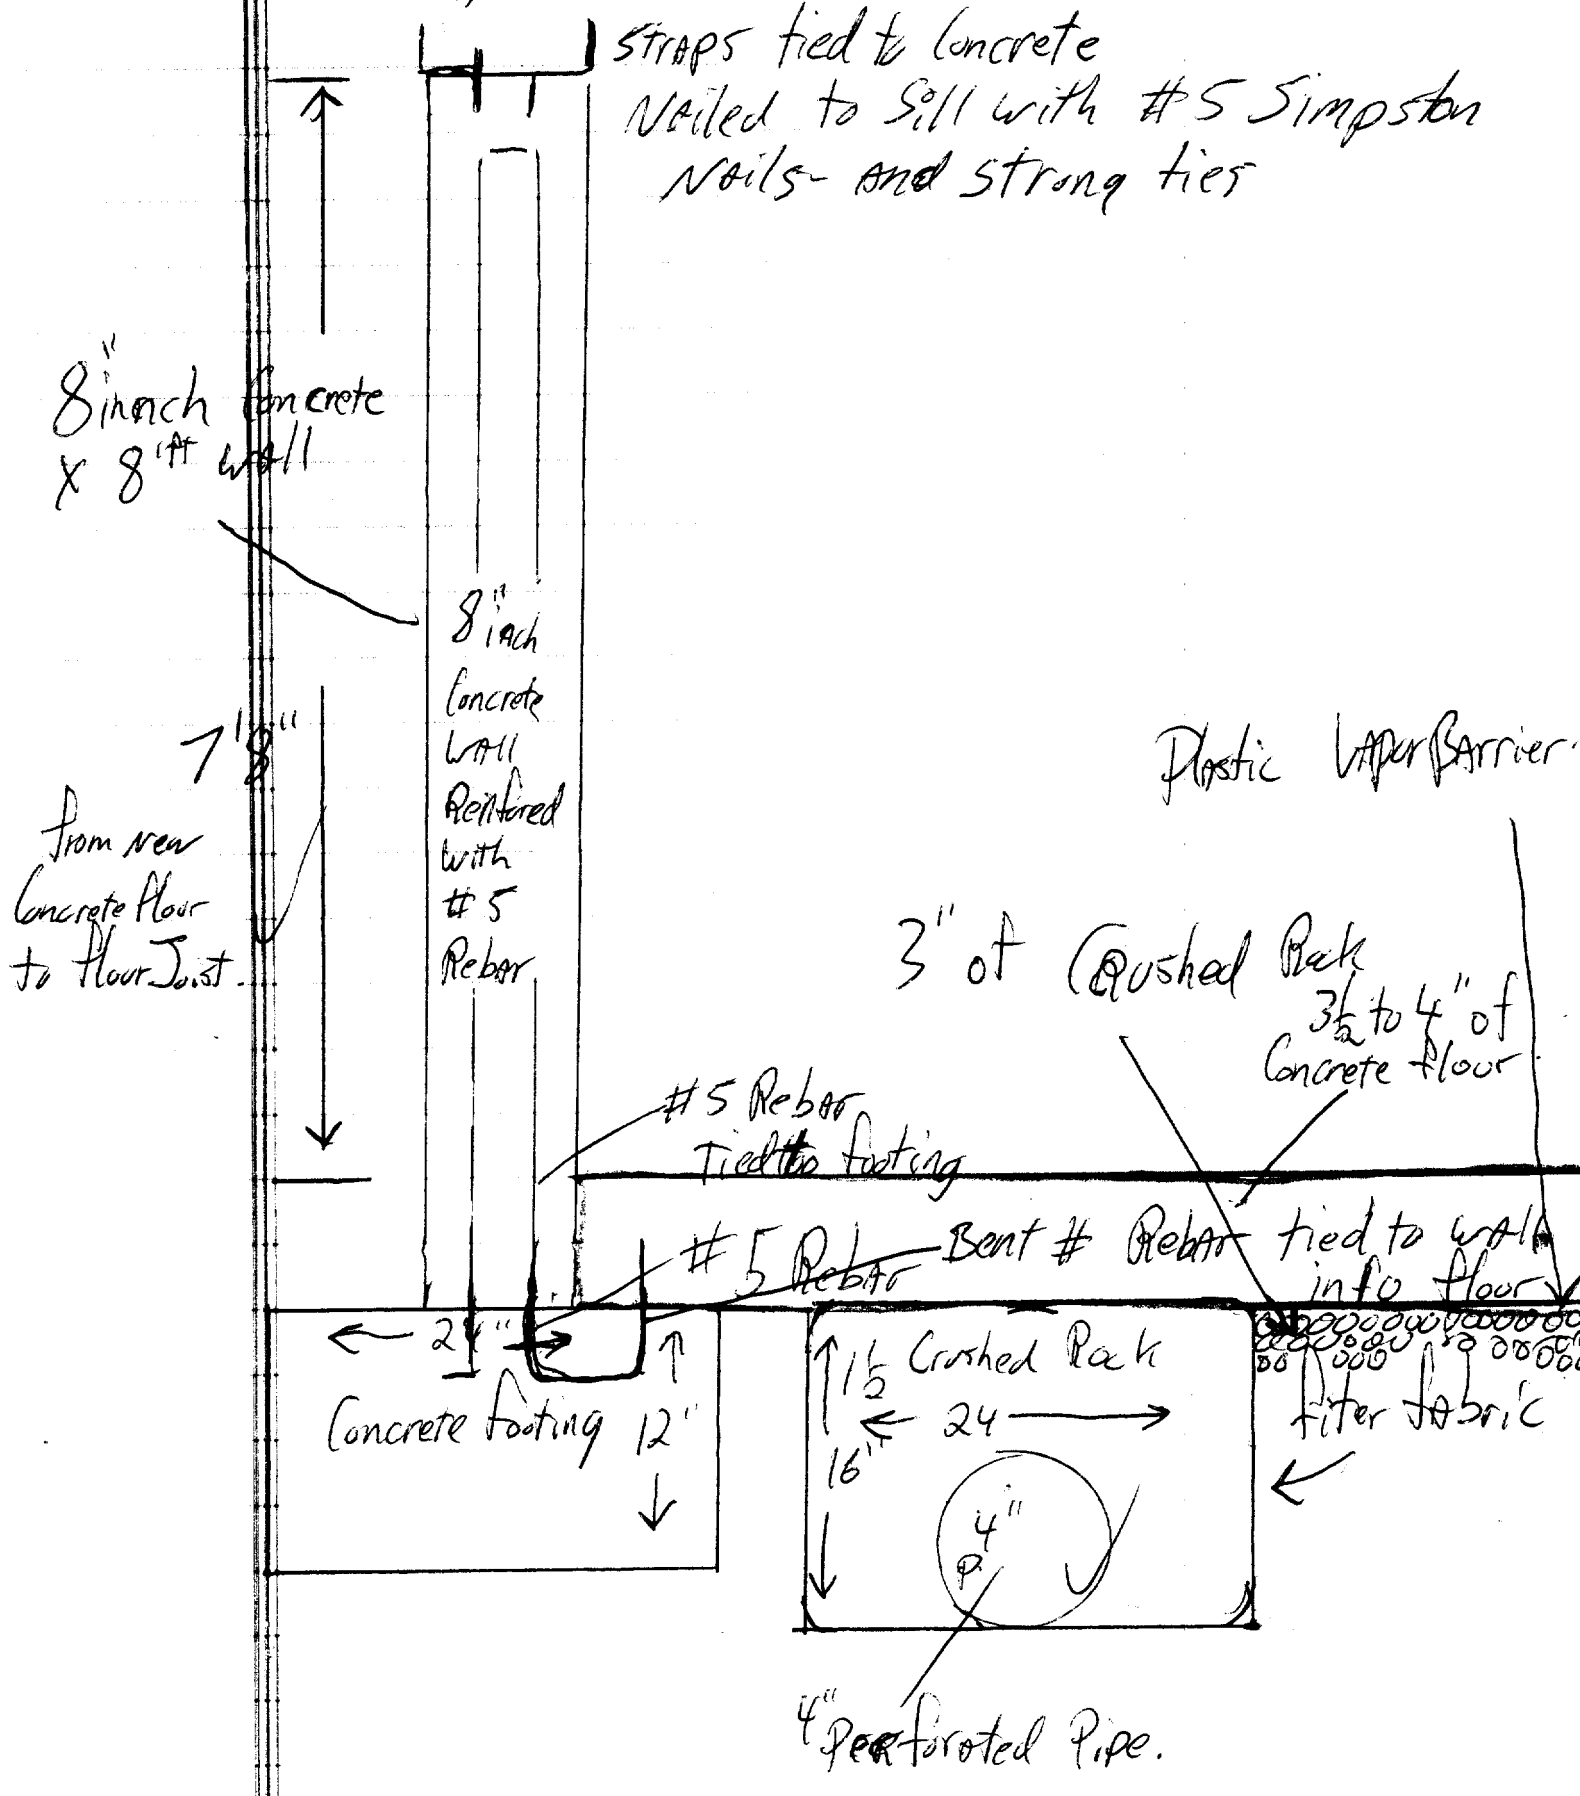 STRAPS tied to Concrete
Nailed to Sill with #5 Simpston
Nails- and strong ties
8"innch Concrete
x 8'ft wall
8"inch
Concrete
Wall
Reinfored
with
#5
Rebar
7'8"
from new
Concrete flour
to flour Joist.
Plastic Vapor Barrier.
3" of Crushed Rock
3½ to 4" of
Concrete flour
#5 Rebar
Tied to footing
#5 Rebar
Bent # Rebar tied to wall
info flour
24"
Concrete footing
12"
1½ Crushed Rock
24
16"
fiter fabric
4"
P.
4"
Perforated Pipe.